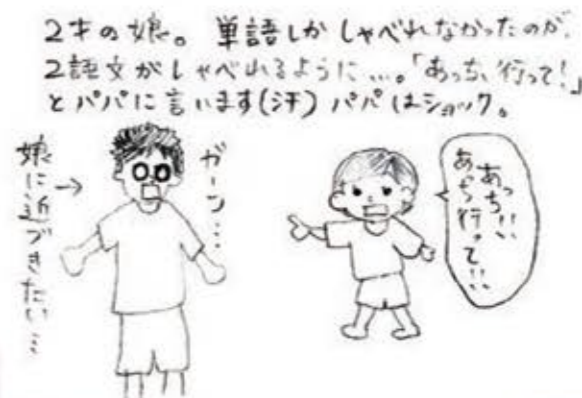 2才の娘。単語しかしゃべれなかったのが、
2語文がしゃべれるように…。「あっち、行って!」
とパパに言います(汗)パパはショック。
娘に近づきたい…
→
ガーン…
あっち!!
あっち行って!!